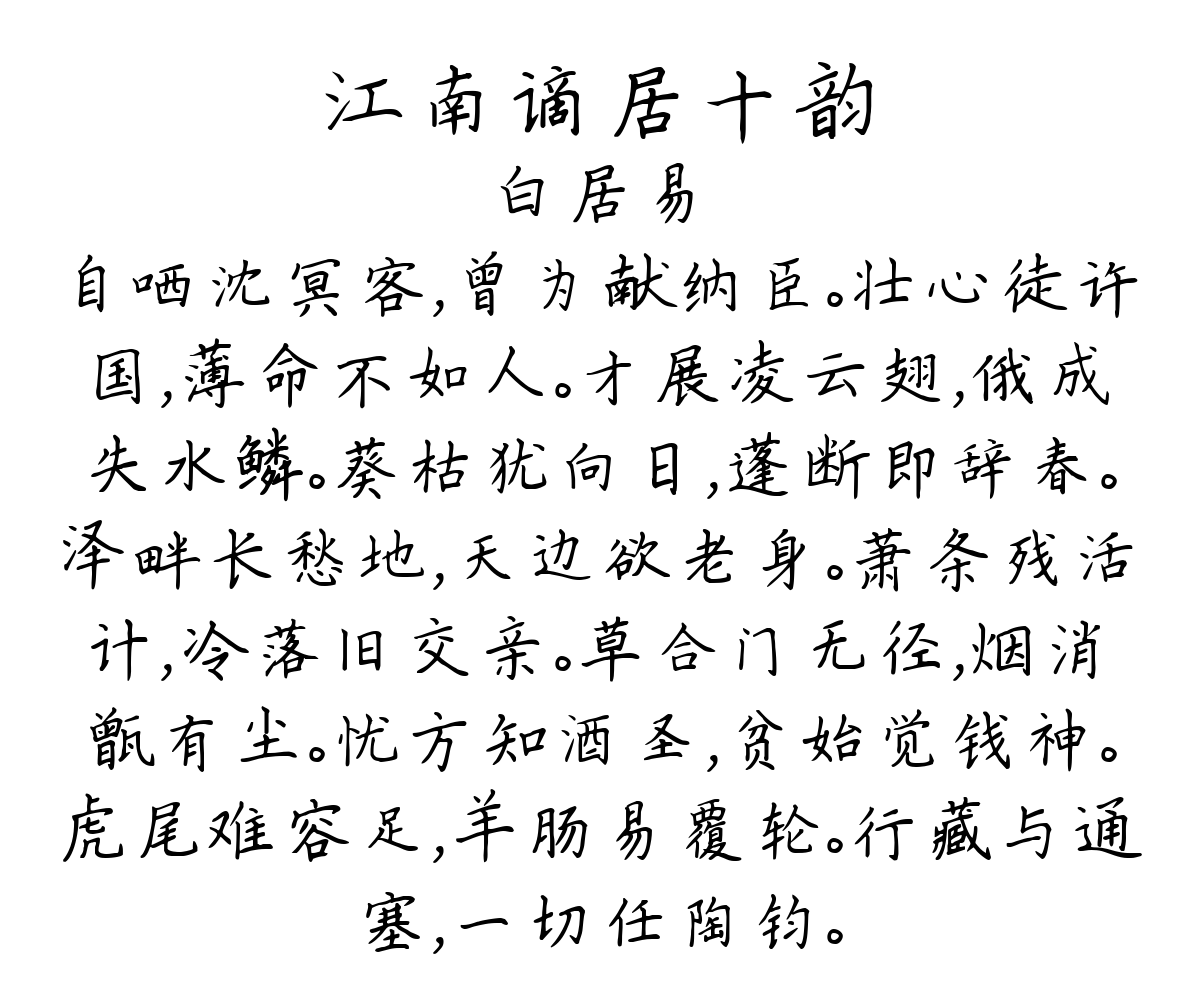 江南谪居十韵
白居易
自哂沈冥客,曾为献纳臣。壮心徒许
国,薄命不如人。才展凌云翅,俄成
失水鳞。葵枯犹向日,蓬断即辞春。
泽畔长愁地,天边欲老身。萧条残活
计,冷落旧交亲。草合门无径,烟消
甑有尘。忧方知酒圣,贫始觉钱神。
虎尾难容足,羊肠易覆轮。行藏与通
塞,一切任陶钧。